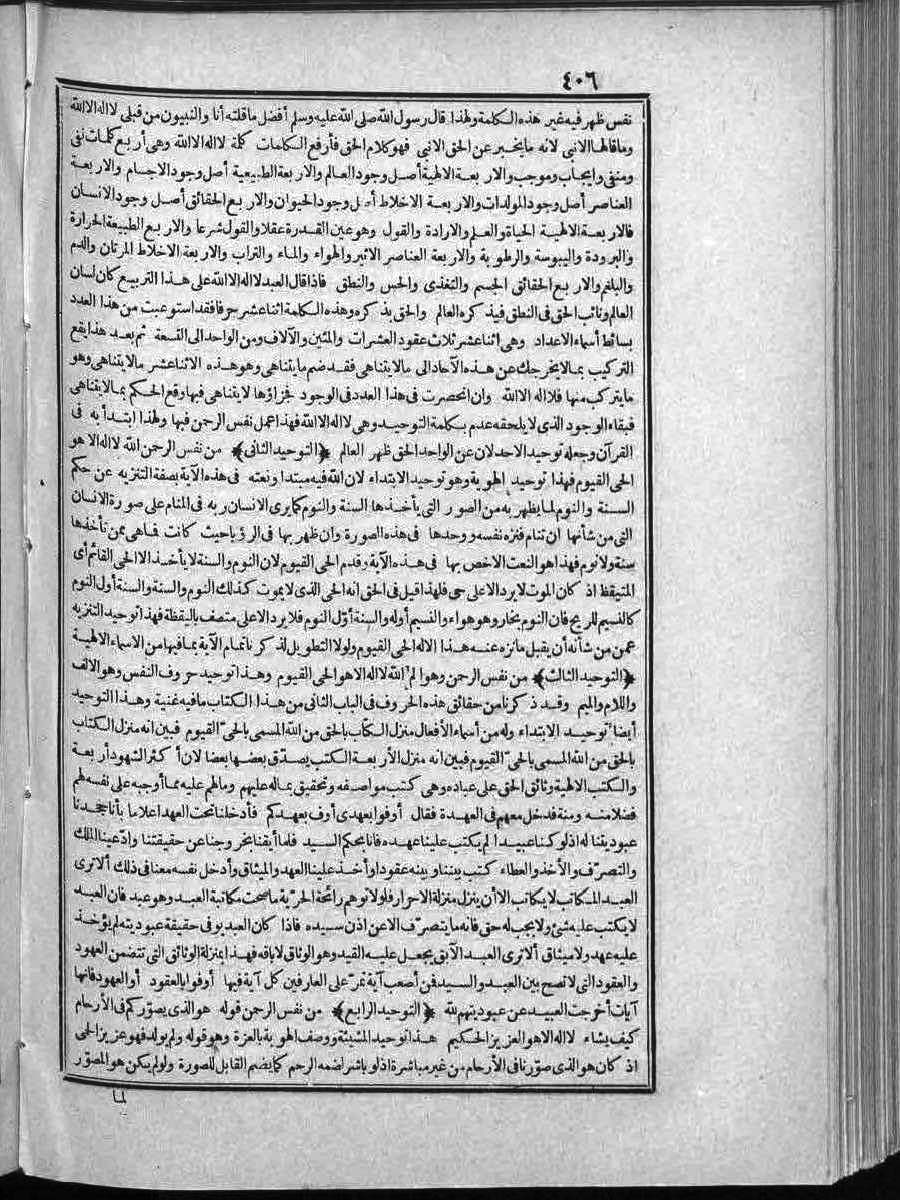 ٤٠٦
نفس ظهر فيه غير هذه الكلمة ولهذا قال رسول الله صلى الله عليه وسلم أفضل ما قلته أنا والنبيون من قبلي لا اله الا الله
وما قالها الا نبي لانه ما يخبر عن الحق الا نبي فهو كلام الحق فأرفع الكلمات كلمة لا اله الا الله وهي أربع كلمات نفي
ومنفي وايجاب وموجب والاربعة الالهية أصل وجود العالم والاربعة الطبيعية أصل وجود الاجسام والاربعة
العناصر أصل وجود المولدات والاربعة الاخلاط أصل وجود الحيوان والاربع الحقائق أصل وجود الانسان
فالاربعة الالهية الحياة والعلم والارادة والقول وهو عين القدرة عقلا والقول شرعا والاربع الطبيعة الحرارة
والبرودة واليبوسة والرطوبة والاربعة العناصر الاثير والهواء والماء والتراب والاربعة الاخلاط المرتان والدم
والبلغم والاربع الحقائق الجسم والتغذى والحس والنطق فاذا قال العبد لا اله الا الله على هذا التربيع كان لسان
العالم ونائب الحق في النطق فيذكره العالم والحق بذكره وهذه الكلمة اثنا عشر حرفا فقد استوعبت من هذا العدد
بسائط أسماء الاعداد وهي اثنا عشر ثلاث عقود العشرات والمئين والآلاف ومن الواحد الى التسعة ثم بعد هذا يقع
التركيب بما لا يخرجك عن هذه الآحاد الى ما لا يتناهى فقد ضم ما يتناهى وهو هذه الاثنا عشر ما لا يتناهى وهو
ما يتركب منها فلا اله الا الله وان انحصرت في هذا العدد في الوجود فجزاؤها لا يتناهى فبها وقع الحكم بما لا يتناهى
فبقاء الوجود الذى لا يلحقه عدم بكلمة التوحيد وهي لا اله الا الله فهذا عمل نفس الرحمن فيها ولهذا ابتدأ به في
القرآن وجعله توحيد الاحد لان عن الواحد الحق ظهر العالم ﴿التوحيد الثاني﴾ من نفس الرحمن الله لا اله الا هو
الحى القيوم فهذا توحيد الهوية وهو توحيد الابتداء لان الله فيه مبتدا ونعته في هذه الآية بصفة التنزيه عن حكم
السنة والنوم لما يظهر به من الصور التي يأخذها السنة والنوم كما يرى الانسان ربه في المنام على صورة الانسان
التي من شأنها ان تنام فنزه نفسه ووحدها في هذه الصورة وان ظهر بها في الرؤيا حيث كانت فما هي ممن تأخذها
سنة ولا نوم فهذا هو النعت الاخص بها في هذه الآية وقدم الحى القيوم لان النوم والسنة لا يأخذ الا الحى القائم أى
المتيقظ اذ كان الموت لا يرد الا على حي فلهذا قيل في الحق انه الحى الذى لا يموت كذلك النوم والسنة والسنة أول النوم
كالنسيم للريح فان النوم بخار وهو هواء والنسيم أوله والسنة أوّل النوم فلا يرد الا على متصف باليقظة فهذا توحيد التنزيه
عمن من شأنه أن يقبل ما نزه عنه هذا الاله الحى القيوم ولولا التطويل لذكرنا تمام الآية بما فيها من الاسماء الالهية
﴿التوحيد الثالث﴾ من نفس الرحمن وهو الم الله لا اله الا هو الحى القيوم وهذا توحيد حروف النفس وهو الالف
واللام والميم وقد ذكرنا من حقائق هذه الحروف في الباب الثاني من هذا الكتاب ما فيه غنية وهذا التوحيد
أيضا توحيد الابتداء وله من أسماء الأفعال منزل الكتاب بالحق من الله المسمى بالحىّ القيوم فبين انه منزل الكتاب
بالحق من الله المسمى بالحىّ القيوم فبين انه منزل الأربعة الكتب يصدّق بعضها بعضا لان أكثر الشهود أربعة
والكتب الالهية وثائق الحق على عباده وهي كتب مواصفه وتحقيق بماله عليهم وما لهم عليه مما أوجبه على نفسه لهم
فضلا منه ومنة فدخل معهم في العهدة فقال أوفوا بعهدى أوف بعهدكم فأدخلنا تحت العهد اعلاما بأنا جحدنا
عبوديتنا له اذ لو كنا عبيدا لم يكتب علينا عهده فانا بحكم السيد فلما أبقنا بخروجنا عن حقيقتنا وادّعينا الملك
والتصرّف والأخذ والعطاء كتب بيننا وبينه عقودا وأخذ علينا العهد والميثاق وأدخل نفسه معنا في ذلك ألا ترى
العبد المكاتب لا يكاتب الا أن ينزل منزلة الاحرار فلولا توهم رائحة الحرّية ما صحت مكاتبة العبد وهو عبد فان العبد
لا يكتب عليه شئ ولا يجب له حق فانه ما يتصرّف الا عن اذن سيده فاذا كان العبد يوفى حقيقة عبوديته لم يؤخذ
عليه عهد ولا ميثاق ألا ترى العبد الآبق يجعل عليه القيد وهو الوثاق لاباقه فهذا بمنزلة الوثائق التي تتضمن العهود
والعقود التي لا تصح بين العبد والسيد فمن أصعب آية تمرّ على العارفين كل آية فيها أوفوا بالعقود أو العهود فانها
آيات أخرجت العبيد عن عبوديتهم لله ﴿التوحيد الرابع﴾ من نفس الرحمن قوله هو الذى يصوّركم في الأرحام
كيف يشاء لا اله الا هو العزيز الحكيم هذا توحيد المشيئة ووصف الهوية بالعزة وهو قوله ولم يولد فهو عزيز الحمى
اذ كان هو الذى صوّرنا في الأرحام من غير مباشرة اذ لو باشر لضمه الرحم كما يضم القابل للصورة ولو لم يكن هو المصوّر
لما